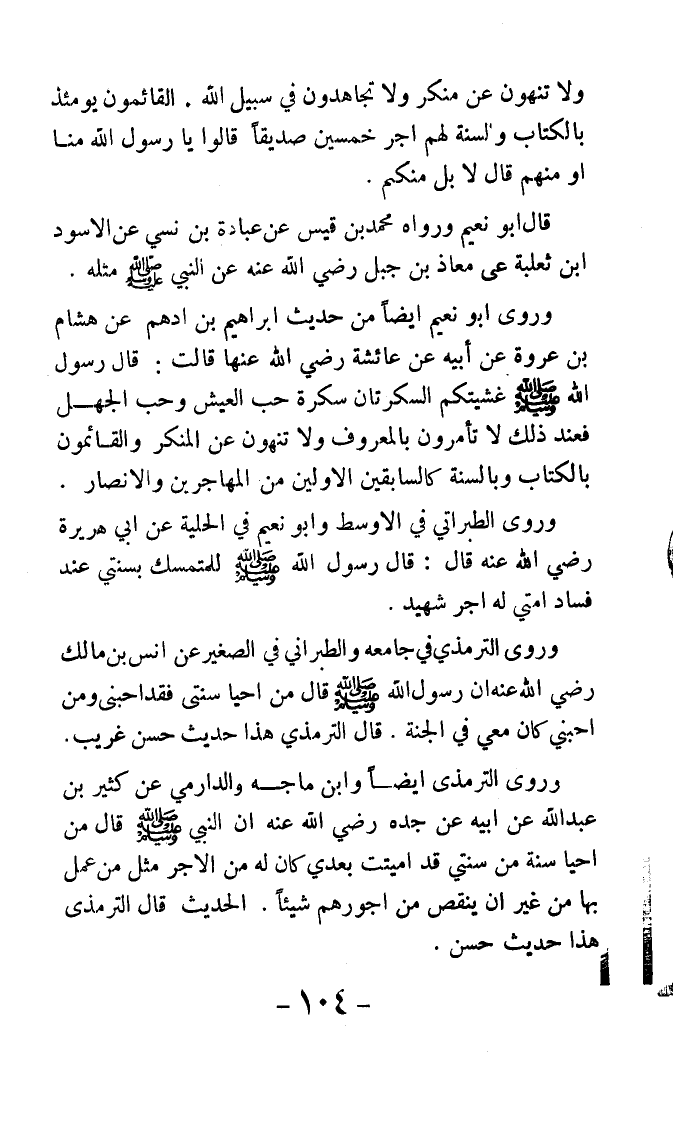 ولا تنهون عن منكر ولا تجاهدون في سبيل الله . القائمون يومئذ
بالكتاب والسنة لهم اجر خمسين صديقاً قالوا يا رسول الله منا
او منهم قال لا بل منكم .
قال ابو نعيم ورواه محمد بن قيس عن عبادة بن نسي عن الاسود
ابن ثعلبة عى معاذ بن جبل رضي الله عنه عن النبي ﷺ مثله .
وروى ابو نعيم ايضاً من حديث ابراهيم بن ادهم عن هشام
بن عروة عن أبيه عن عائشة رضي الله عنها قالت : قال رسول
الله ﷺ غشيتكم السكرتان سكرة حب العيش وحب الجهل
فعند ذلك لا تأمرون بالمعروف ولا تنهون عن المنكر والقائمون
بالكتاب وبالسنة كالسابقين الاولين من المهاجرين والانصار .
وروى الطبراتي في الاوسط وابو نعيم في الحلية عن ابي هريرة
رضي الله عنه قال : قال رسول الله ﷺ للمتمسك بسنتي عند
فساد امتي له اجر شهيد .
وروى الترمذي في جامعه والطبراني في الصغير عن انس بن مالك
رضي الله عنه ان رسول الله ﷺ قال من احيا سنتى فقد احبنى ومن
احبني كان معي في الجنة . قال الترمذي هذا حديث حسن غريب .
وروى الترمذى ايضاً وابن ماجه والدارمي عن كثير بن
عبدالله عن ابيه عن جده رضي الله عنه ان النبي ﷺ قال من
احيا سنة من سنتي قد اميتت بعدي كان له من الاجر مثل من عمل
بها من غير ان ينقص من اجورهم شيئاً . الحديث قال الترمذى
هذا حديث حسن .
- ١٠٤ -